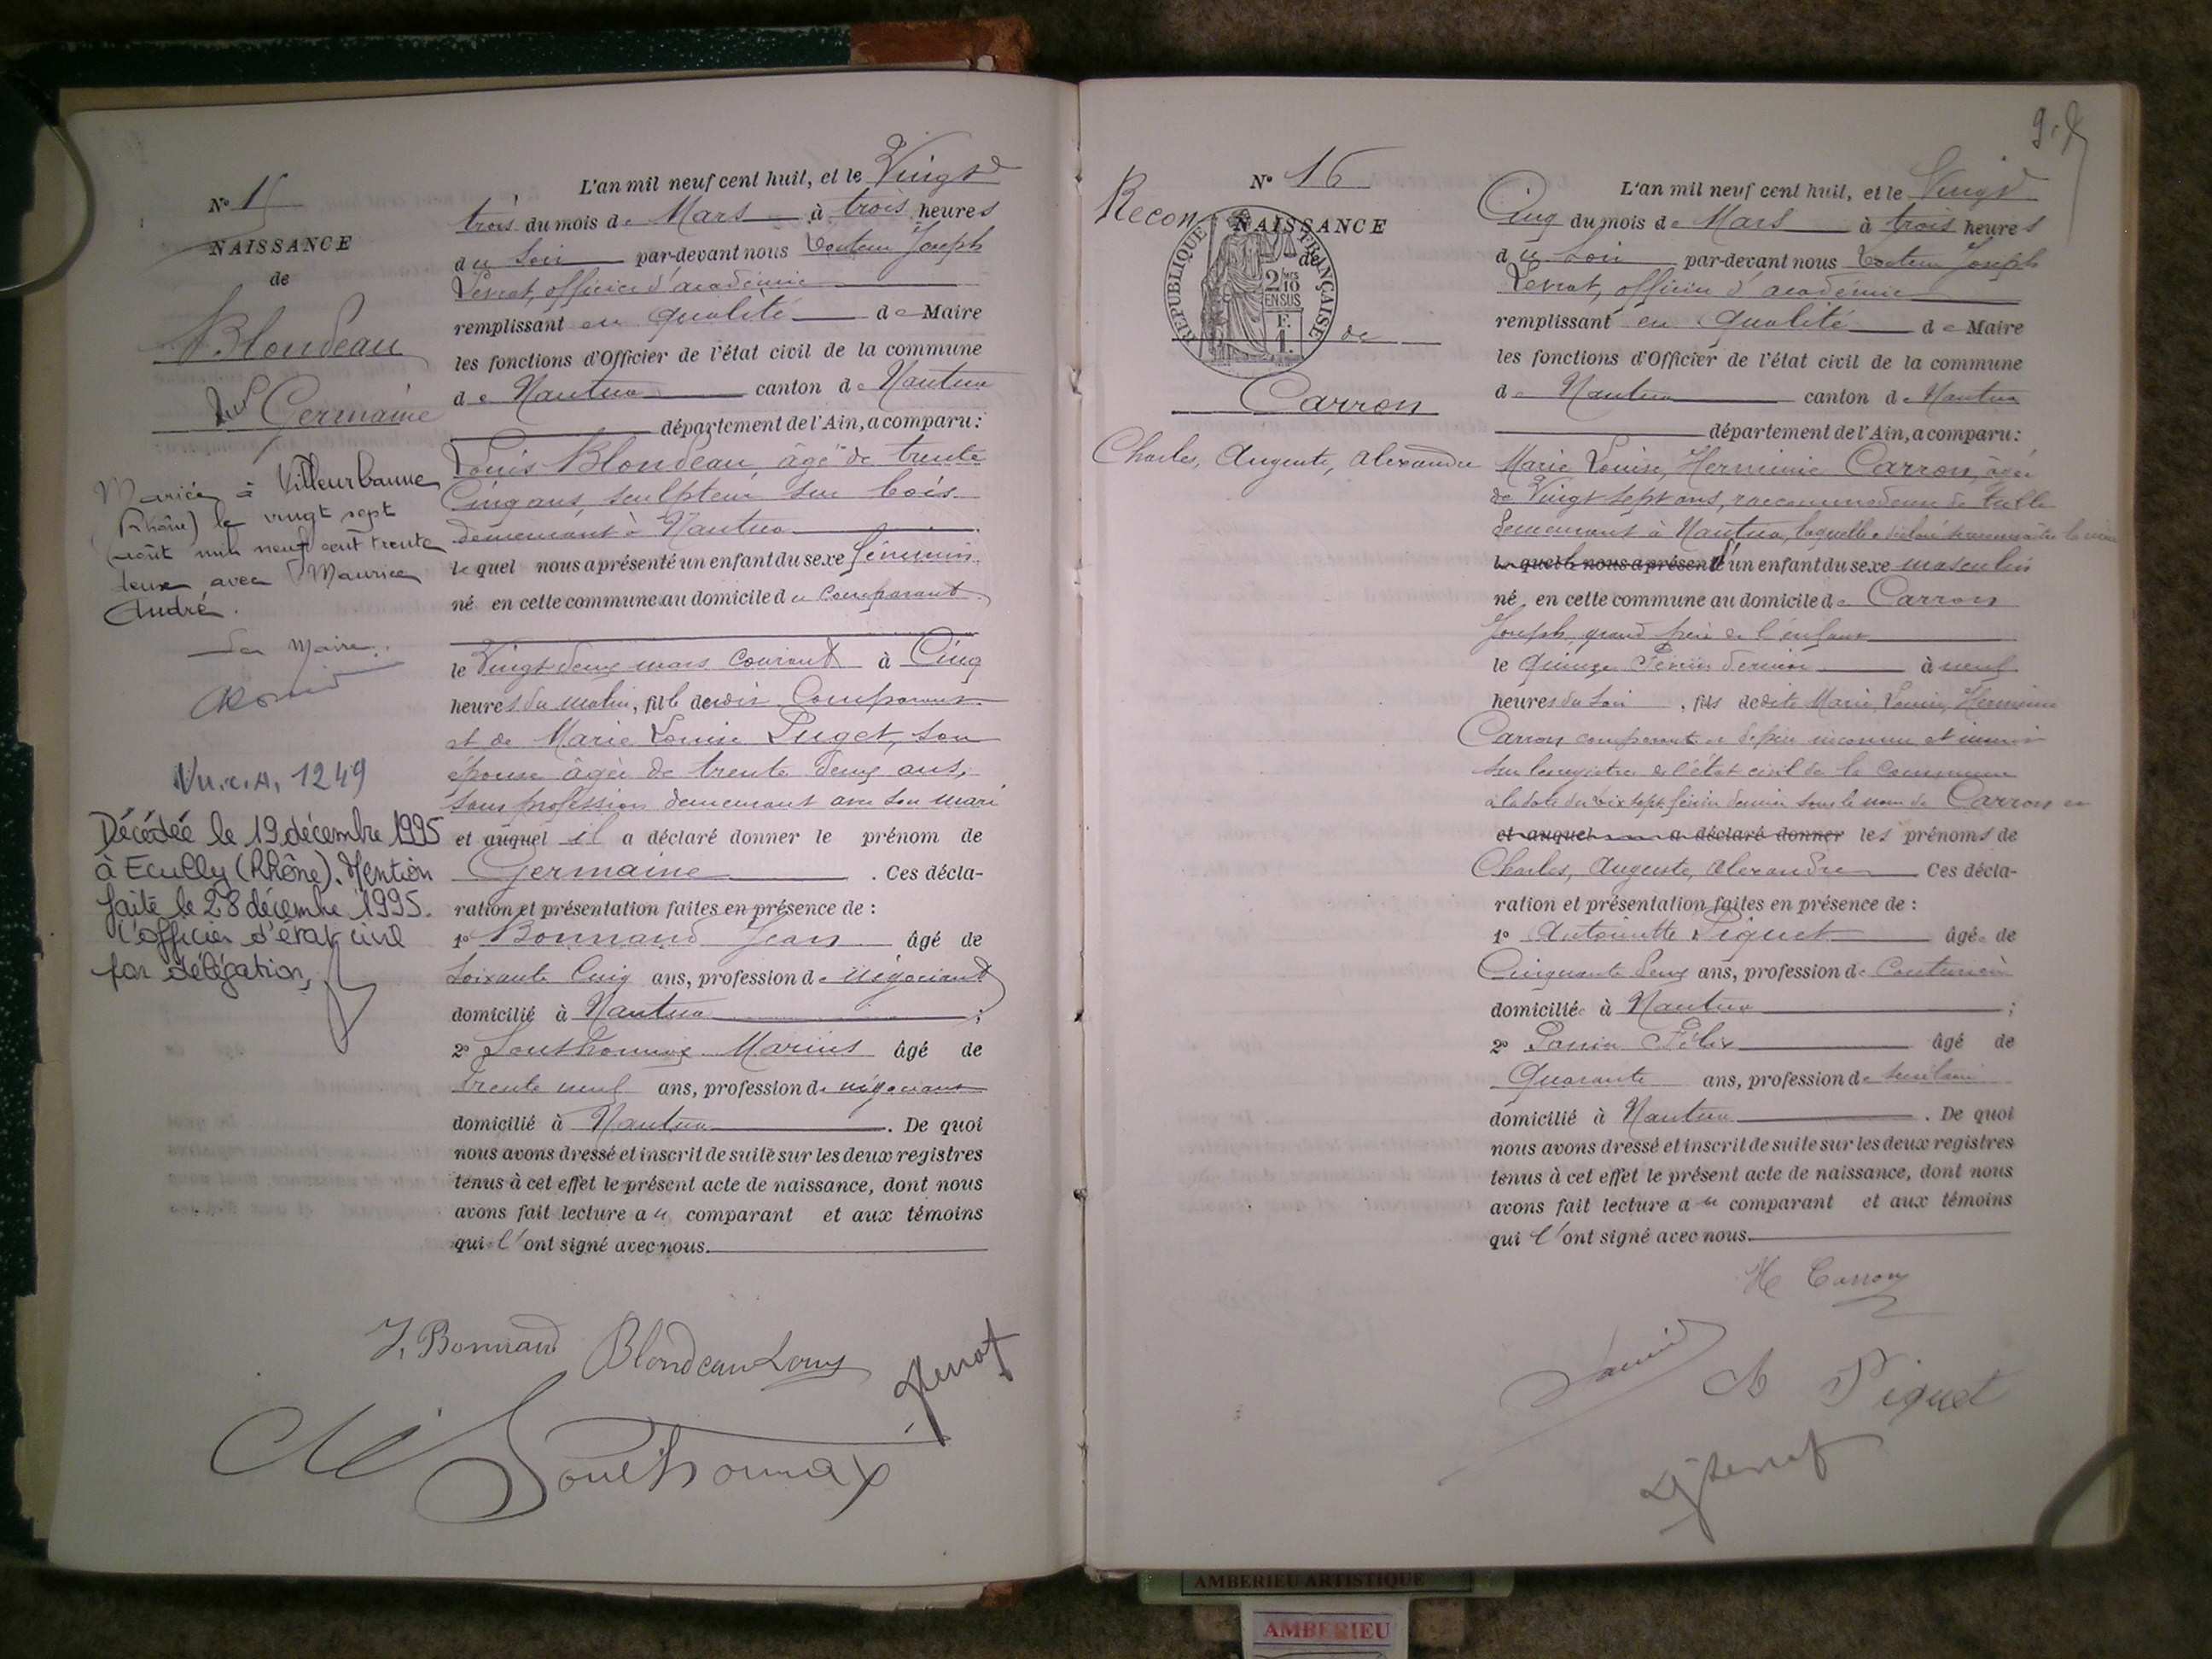 N° 15
NAISSANCE
de
Blondeau
Germaine
Mariée à Villeurbanne
(Rhône) le vingt sept
août mil neuf cent trente
deux avec Maurice
André.
Le Maire.
Vu.c.A. 1249
Décédée le 19 décembre 1995
à Ecully (Rhône). Mention
faite le 28 décembre 1995.
l'officier d'état civil
par délégation,
L'an mil neuf cent huit, et le Vingt
trois du mois de Mars à trois heures
du soir par-devant nous Docteur Joseph
officier d'académie
remplissant en qualité de Maire
les fonctions d'Officier de l'état civil de la commune
de Nantua canton de Nantua
département de l'Ain, a comparu:
Louis Blondeau âgé de trente
Cinq ans, sculpteur sur bois
demeurant à Nantua
lequel nous a présenté un enfant du sexe féminin
né en cette commune au domicile du comparant
le Vingt deux mars courant à Cinq
heures du matin, fille dudit Comparant
et de Marie Louise Puget, son
épouse âgée de trente deux ans,
sans profession demeurant avec son mari
et auquel il a déclaré donner le prénom de
Germaine. Ces décla-
ration et présentation faites en présence de :
1° Bonnand Jean âgé de
soixante Cinq ans, profession de négociant
domicilié à Nantua ;
2° Southonnax Marius âgé de
trente neuf ans, profession de négociant
domicilié à Nantua. De quoi
nous avons dressé et inscrit de suite sur les deux registres
tenus à cet effet le présent acte de naissance, dont nous
avons fait lecture au comparant et aux témoins
qui l'ont signé avec nous.
J. Bonnand Blondeau Louis
Southonnax
N° 16
Recon NAISSANCE
de
REPUBLIQUE FRANÇAISE
2/10
EN SUS
de
Carron
Charles, Auguste, Alexandre
L'an mil neuf cent huit, et le Vingt
Cinq du mois de Mars à trois heures
du soir par-devant nous Docteur Joseph
officier d'académie
remplissant en qualité de Maire
les fonctions d'Officier de l'état civil de la commune
de Nantua canton de Nantua
département de l'Ain, a comparu:
Marie Louise, Herminie Carron, âgée
de Vingt sept ans, raccommodeuse de tulle
demeurant à Nantua, laquelle a déclaré
lequelle nous a présenté d'un enfant du sexe masculin
né en cette commune au domicile de Carron
Joseph, grand père de l'enfant
le quinze Février dernier à neuf
heures du soir, fils de dite Marie, Louise, Herminie
Carron comparante et de père inconnu et inscrit
sur les registres de l'état civil de la Commune
à la date du dix sept février dernier sous le nom de Carron et
et auquel a déclaré donner les prénoms de
Charles, Auguste, Alexandre Ces décla-
ration et présentation faites en présence de :
1° Antoinette Piquet âgée de
Cinquante deux ans, profession de Couturière
domiciliée à Nantua ;
2° Félix âgé de
Quarante ans, profession de
domicilié à Nantua. De quoi
nous avons dressé et inscrit de suite sur les deux registres
tenus à cet effet le présent acte de naissance, dont nous
avons fait lecture au comparant et aux témoins
qui l'ont signé avec nous.
H Carron
A Piquet
AMBERIEU ARTISTIQUE
AMBERIEU